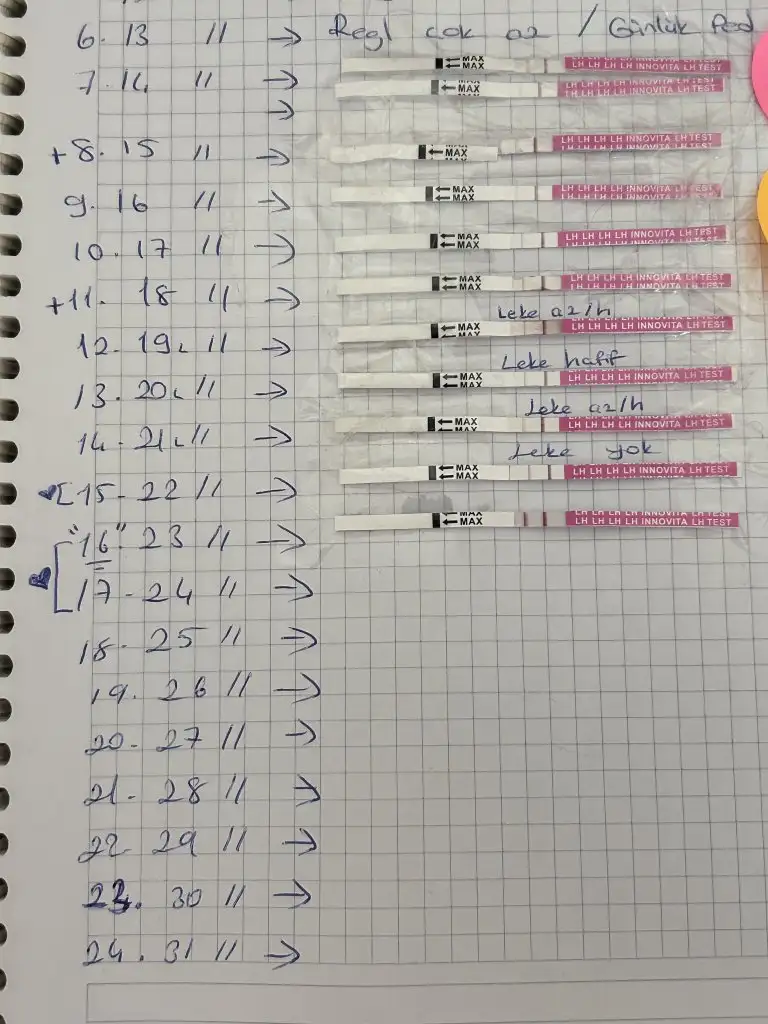 6. 13 // → Regl çok az / Günlük Ped
← MAX
← MAX
LH LH LH LH INNOVITA LH TEST
7. 14 // →
← MAX
← MAX
LH LH LH LH INNOVITA LH TEST
→
+8. 15 // →
← MAX
LH LH LH LH INNOVITA LH TEST
LH LH LH LH
9. 16 // →
← MAX
← MAX
LH LH LH LH INNOVITA LH TEST
10. 17 // →
← MAX
← MAX
LH LH LH LH INNOVITA LH TEST
+11. 18 // →
← MAX
← MAX
LH LH LH LH INNOVITA LH TEST
Leke az/h
12. 19 // →
← MAX
← MAX
LH LH LH LH INNOVITA LH TEST
Leke hafif
13. 20 // →
← MAX
← MAX
LH LH LH LH INNOVITA LH TEST
Leke az/h
14. 21 // →
← MAX
← MAX
LH LH LH LH INNOVITA LH TEST
Leke yok
[15- 22 // →
← MAX
← MAX
LH LH LH LH INNOVITA LH TEST
"16". 23 // →
← MAX
← MAX
LH LH LH LH INNOVITA LH TEST
17- 24 // →
18- 25 // →
19. 26 // →
20- 27 // →
21- 28 // →
22- 29 // →
23. 30 // →
24. 31 // →